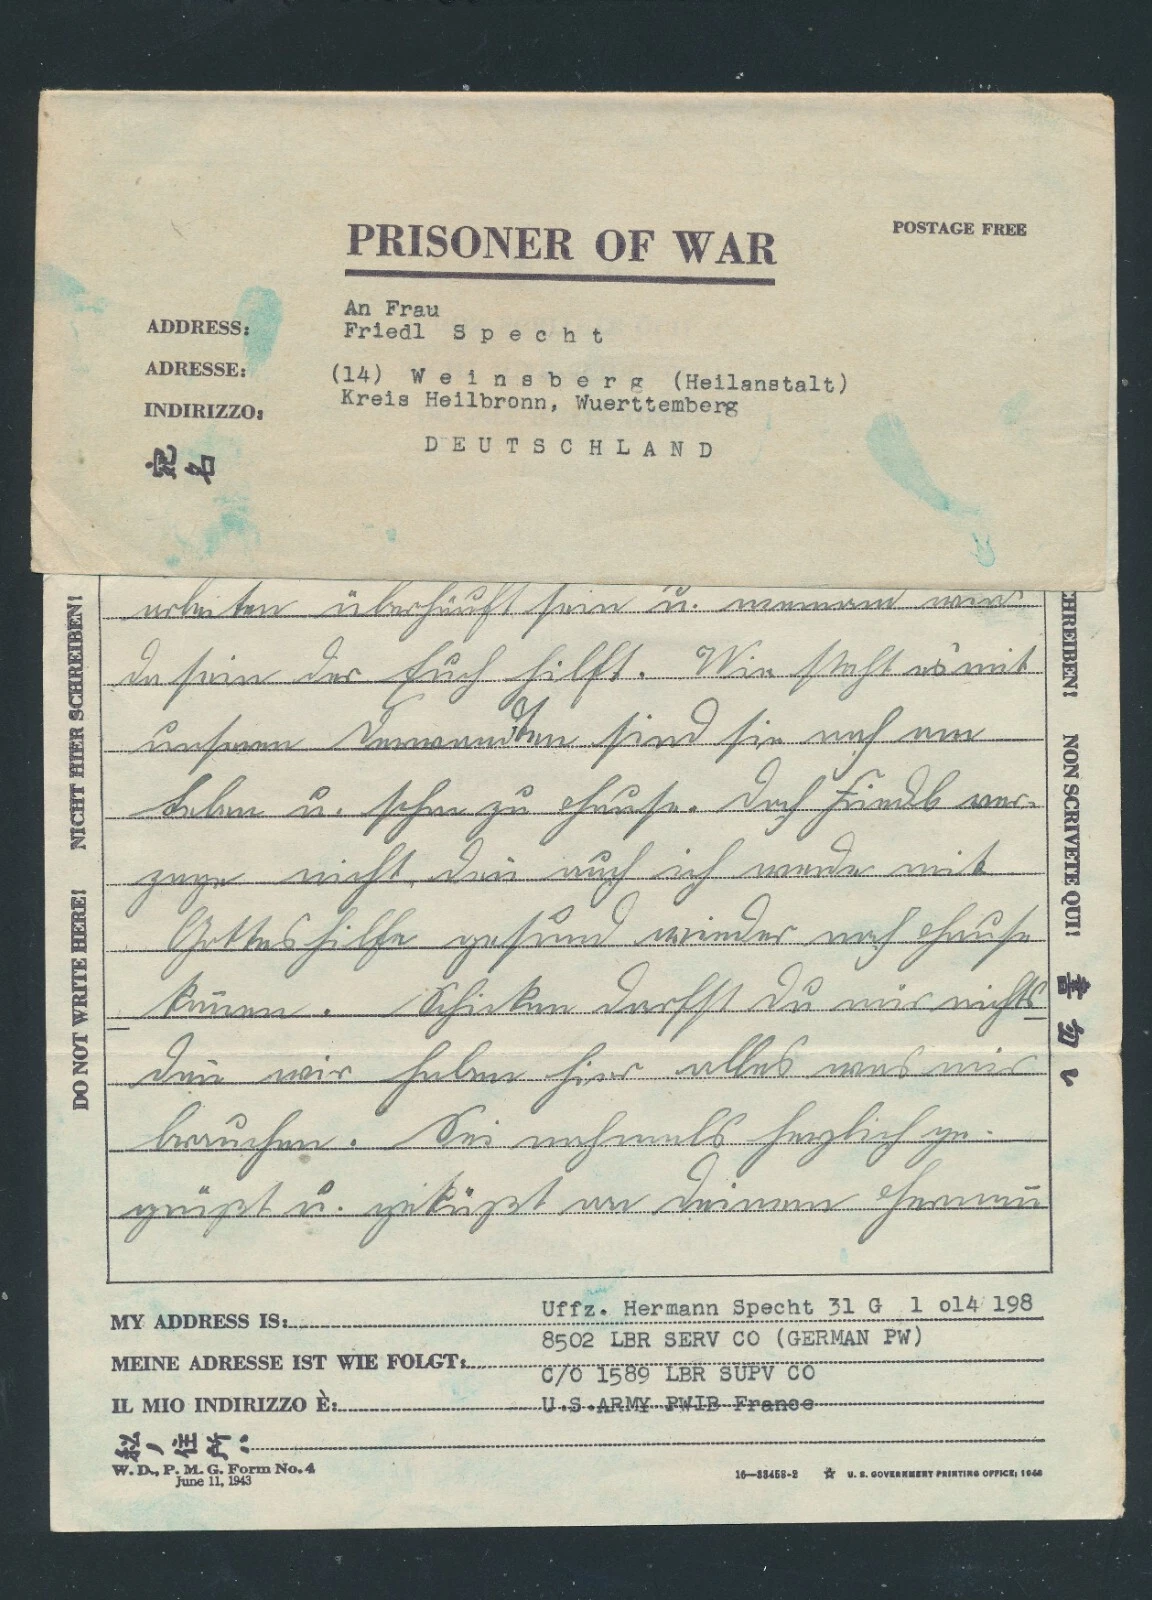 PRISONER OF WAR
POSTAGE FREE
ADDRESS:
An Frau
Friedl Specht
ADRESSE:
(14) Weinsberg (Heilanstalt)
INDIRIZZO:
Kreis Heilbronn, Wuerttemberg
DEUTSCHLAND
宛名
DO NOT WRITE HERE! NICHT HIER SCHREIBEN!
CHREIBEN! NON SCRIVETE QUI!
arbeiten überhäuft sein u. niemand wird
da sein der Euch hilft. Wie steht es mit
unseren Verwandten sind sie noch am
Leben u. schon zu Hause. Doch Friedl ver-
zage nicht, den auch ich werde mit
Gotteshilfe gesund wieder nach Hause
kom̄en. Schicken darfst Du mir nichts
den wir haben hier alles was wir
brauchen. Sei nochmals herzlich ge-
grüßt u. geküßt von Deinem Herman̄
MY ADDRESS IS: Uffz. Hermann Specht 31 G 1 o14 198
8502 LBR SERV CO (GERMAN PW)
MEINE ADRESSE IST WIE FOLGT:
C/O 1589 LBR SUPV CO
IL MIO INDIRIZZO È: U.S.ARMY PWIB France
私ノ住所ハ
W. D., P. M. G. Form No. 4
June 11, 1943
16—33458-2 ☆ U. S. GOVERNMENT PRINTING OFFICE: